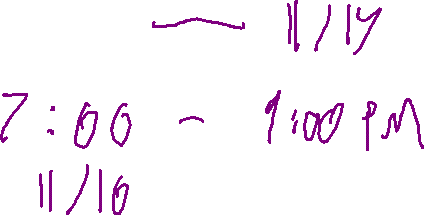 ~ 11/14
7:00 ~ 9:00 PM
11/16